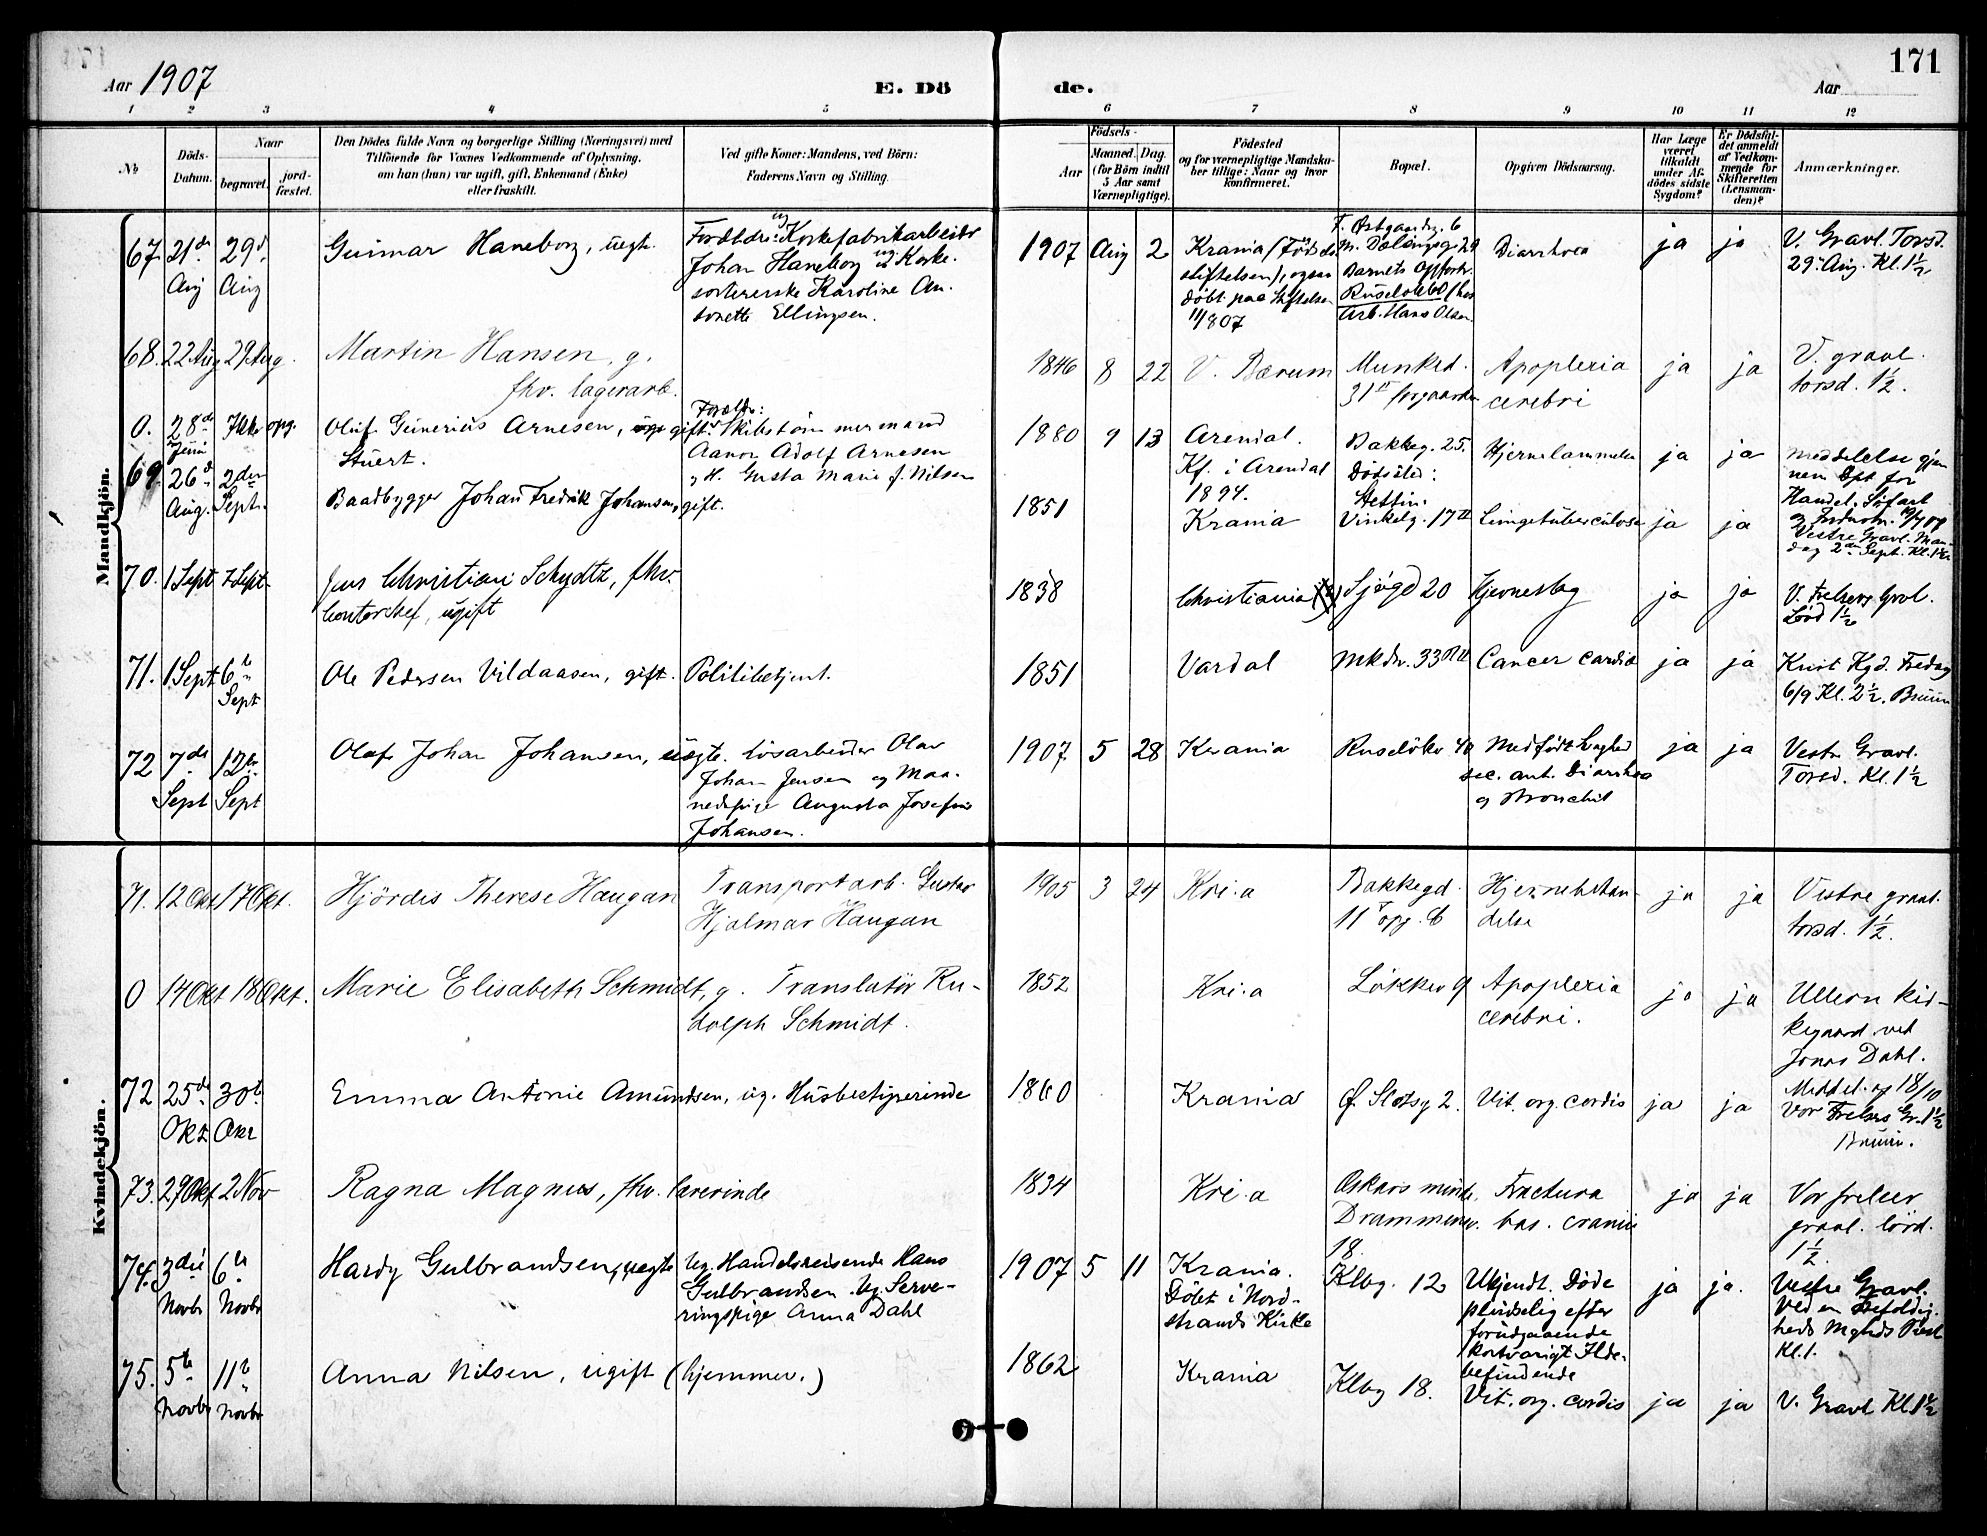 171
Aar 1907
E. Dö
de.
Aar
1 2 3 4 5 6 7 8 9 10 11 12
No
Döds-Datum.
Naar
begravet.
jord-fæstet.
Den Dödes fulde Navn og borgerlige Stilling (Næringsvei) med
Tilföiende for Voxnes Vedkommende af Oplysning,
om han (hun) var ugift, gift, Enkemand (Enke)
eller fraskilt.
Ved gifte Koner: Mandens, ved Börn:
Faderens Navn og Stilling.
Födsels-
Aar
Maaned. Dag.
(for Börn indtil
5 Aar samt
Værnepligtige).
Födested
og for værnepligtige Mandska-
ber tillige: Naar og hvor
konfirmeret.
Bopæl.
Opgiven Dödsaarsag.
Har Læge
været
tilkaldt
under Af-
dödes sidste
Sygdom?
Er Dödsfal-
det anmeldt
af Vedkom-
mende for
Skifteretten
(Lensman-
den)?
Anmærkninger.
Mandkjön.
67. 21de Aug 29d Aug
Gunnar Haneborg, uegte.
Johan Haneborg og Korke-
sortererske Karoline An-
tonette Ellingsen.
1907 Aug 2
Krania (Föds
stiftelsen), ogsaa
döbt paa Stiftelsen
11/8 07
Barnets Opfostr.
Ruselökbl (hos
Arb. Hans Olsen
Diarrhoea
ja ja
V. Gravl. Torsd.
29. Aug. Kl. 1½
68. 22 Aug 29 Aug.
Martin Hansen, g.
fhv. lagerarb.
1846 8 22
V. Bærum
Munkd.
31 II forgaarden
Apoplexia
cerebri
ja ja
V. gravl.
torsd. 1½.
0. 28de Juni Ikke opg.
Oluf Gunerius Arnesen, gift.
Stuert.
Foreldre:
Skibstömmermand
Aanon Adolf Arnesen
og H. Gusta Marie f. Nilsen
1880 9 13
Arendal.
Kf. i Arendal
1894.
Bakkeg. 25.
Dödssted:
Stettin.
Hjernelammelse
ja ja
Meddelelse gjen-
nem Dpt for
Handel, Söfart
og Industri.
69. 26d Aug. 2den Sept.
Baadbygger Johan Fredrik Johansen, gift.
1851
Krania
Vinkelg. 17 II
Lungetuberculose
ja ja
Vestre Gravl. Man-
dag 2den Sept. Kl. 1½
70. 1 Sept 7 Sept.
Jens Christian Schydtz, fhv.
contorchef, ugift
1838
Christiania
Sjögd 20
Hjerneslag
ja ja
V. Frelsers Gravl.
Lörd 1½
71. 1 Sept 6te Sept
Ole Pedersen Vildaasen, gift. Politibetjent.
1851
Vardal
Mkdv. 33
Cancer cardiæ
ja ja
Krist Kgd. Fredag
6/9 Kl. 2½. Bruun
72 7de Sept 12te Sept
Olaf Johan Johansen, uægte.
Lösarbeider Olav
Johan Jensen og Maa-
nedspige Augusta Josefine
Johansen.
1907 5 28
Krania
Ruselökv 40
Medfödt Svaghed
sec. ant. Diarrhoea
og Bronchit
ja ja
Vestre Gravl.
Torsd. Kl. 1½
Kvindekjön.
71. 12 Okt 17 Okt.
Hjördis Therese Haugan
Transportarb. Gustav
Hjalmar Haugan
1905 3 24
Kri.a
Bakkegd.
11 opg. C
Hjernebetæn-
delse
ja ja
Vestre gravl.
torsd. 1½.
0 14 Okt 18 Okt.
Marie Elisabeth Schmidt, g.
Translatör Ru-
dolph Schmidt.
1852
Kri.a
Lökkev 9
Apoplexia
cerebri.
ja ja
Ullern kir-
kegaard ved
Jonas Dahl.
Meddel. og 18/10
72 25de Okt 30te Okt
Emma Antonie Amundsen, ug. Husbestyrerinde
1860
Krania
Slotsg 2.
Vit. org. cordis
ja ja
Vor Frelsers Gr. 1½
Bruun.
73. 29 Okt 2 Nov
Ragna Magnus, fhv. lærerinde
1834
Kri.a
Oskars minde,
Drammensv.
18.
Fractura
bas. cranii
ja ja
Vor frelser
gravl. lörd.
1½
74. 3die Novbr 6te Novbr
Hardy Gulbrandsen, uegte
Ug. Handelsreisende Hans
Gulbrandsen. Ug. Serve-
ringspige Anna Dahl
1907 5 11
Krania.
Döbt i Nord-
strands Kirke
Klbg. 12
Ukjendt. Döde
pludselig efter
forudgaaende
kortvarigt Ilde-
befindende
ja ja.
Vestre Gravl.
Ved en Trefoldig-
heds Mgheds Prest
Kl. 1.
75. 5te Novbr 11te Novbr
Anna Nilsen, ugift (hjemmev.)
1862
Krania
Klbg 18.
Vit. org. cordis
ja ja
V. Gravl Kl. 1½